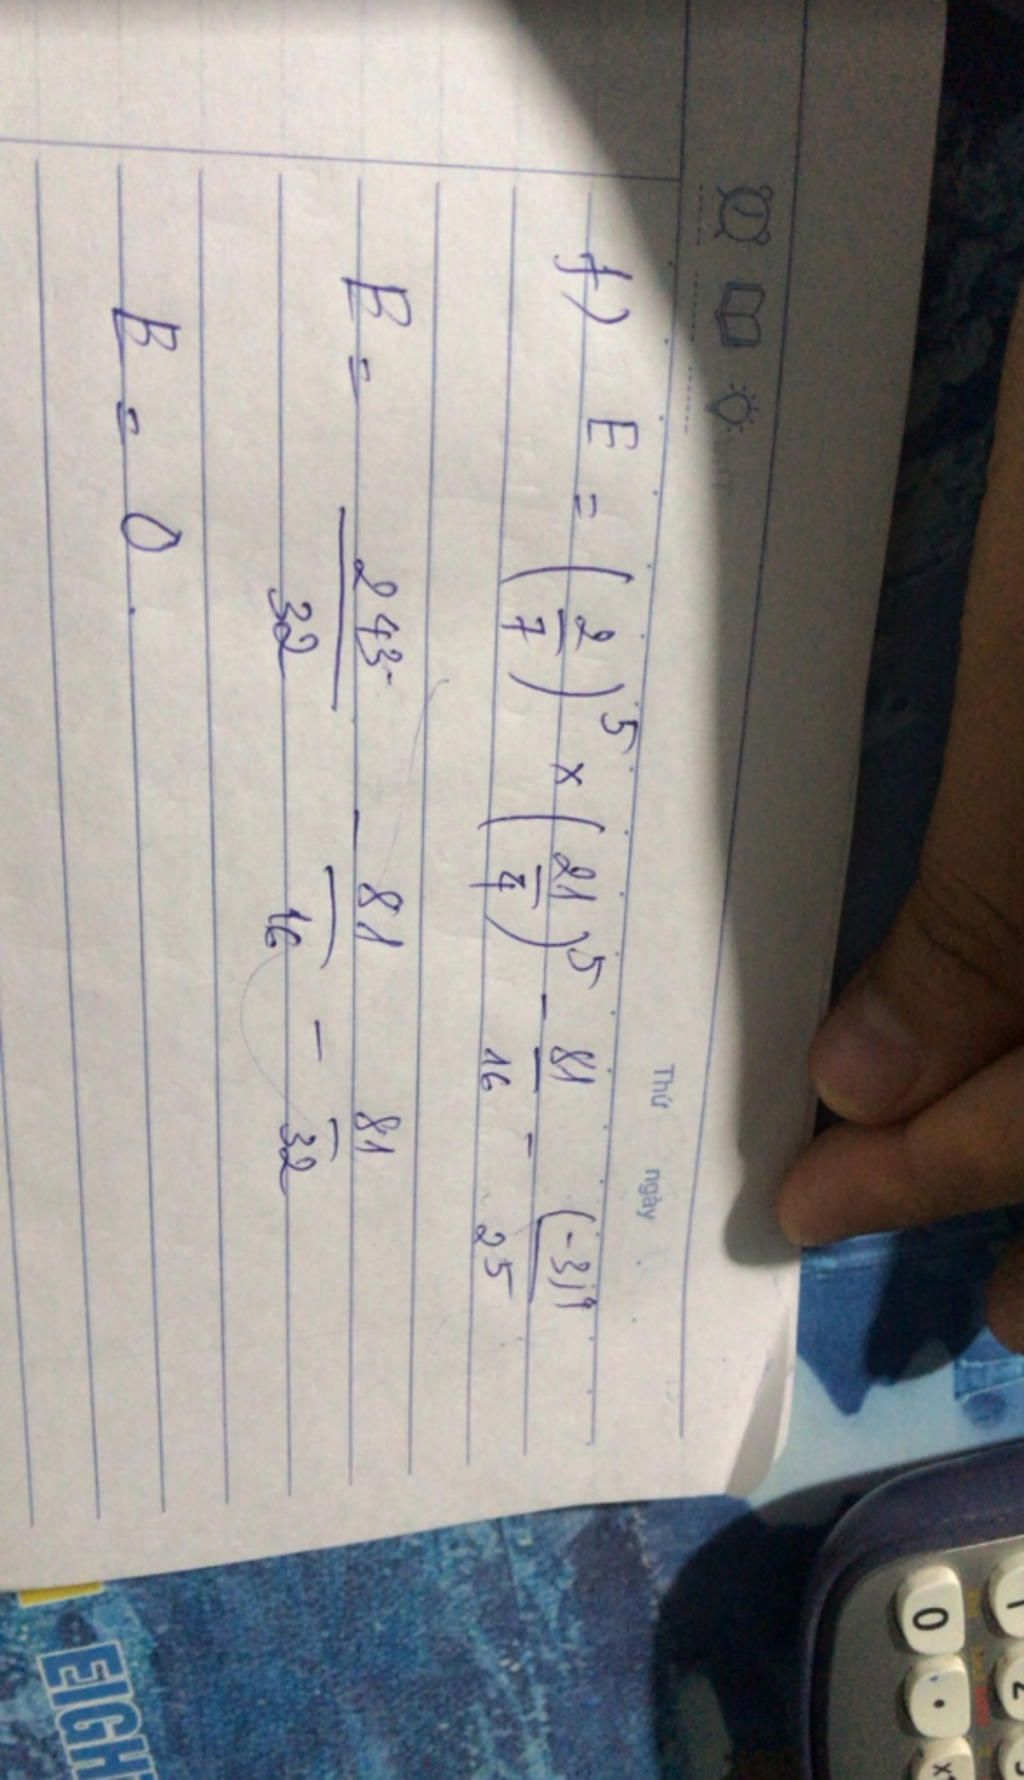 Thứ ngày
f) E = (2/7)^5 × (21/4)^5 - 81/16 - (-3)^4/25
E = 243/32 - 81/16 - 81/32
E = 0.
EIGH
1 2
0 .